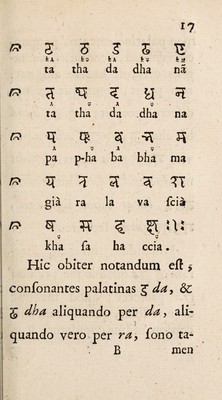 17
ट ठ ड ढ ण
ta tha da dha nã
त थ द ध न
ta tha da dha na
प फ ब भ म
pa p-ha ba bha ma
य र ल व श
già ra la va ſcià
ष स ह क्ष
kha ſa ha ccia.
Hic obiter notandum eſt,
conſonantes palatinas ड da, &
ढ dha aliquando per da, ali-
quando vero per ra, ſono ta-
B men